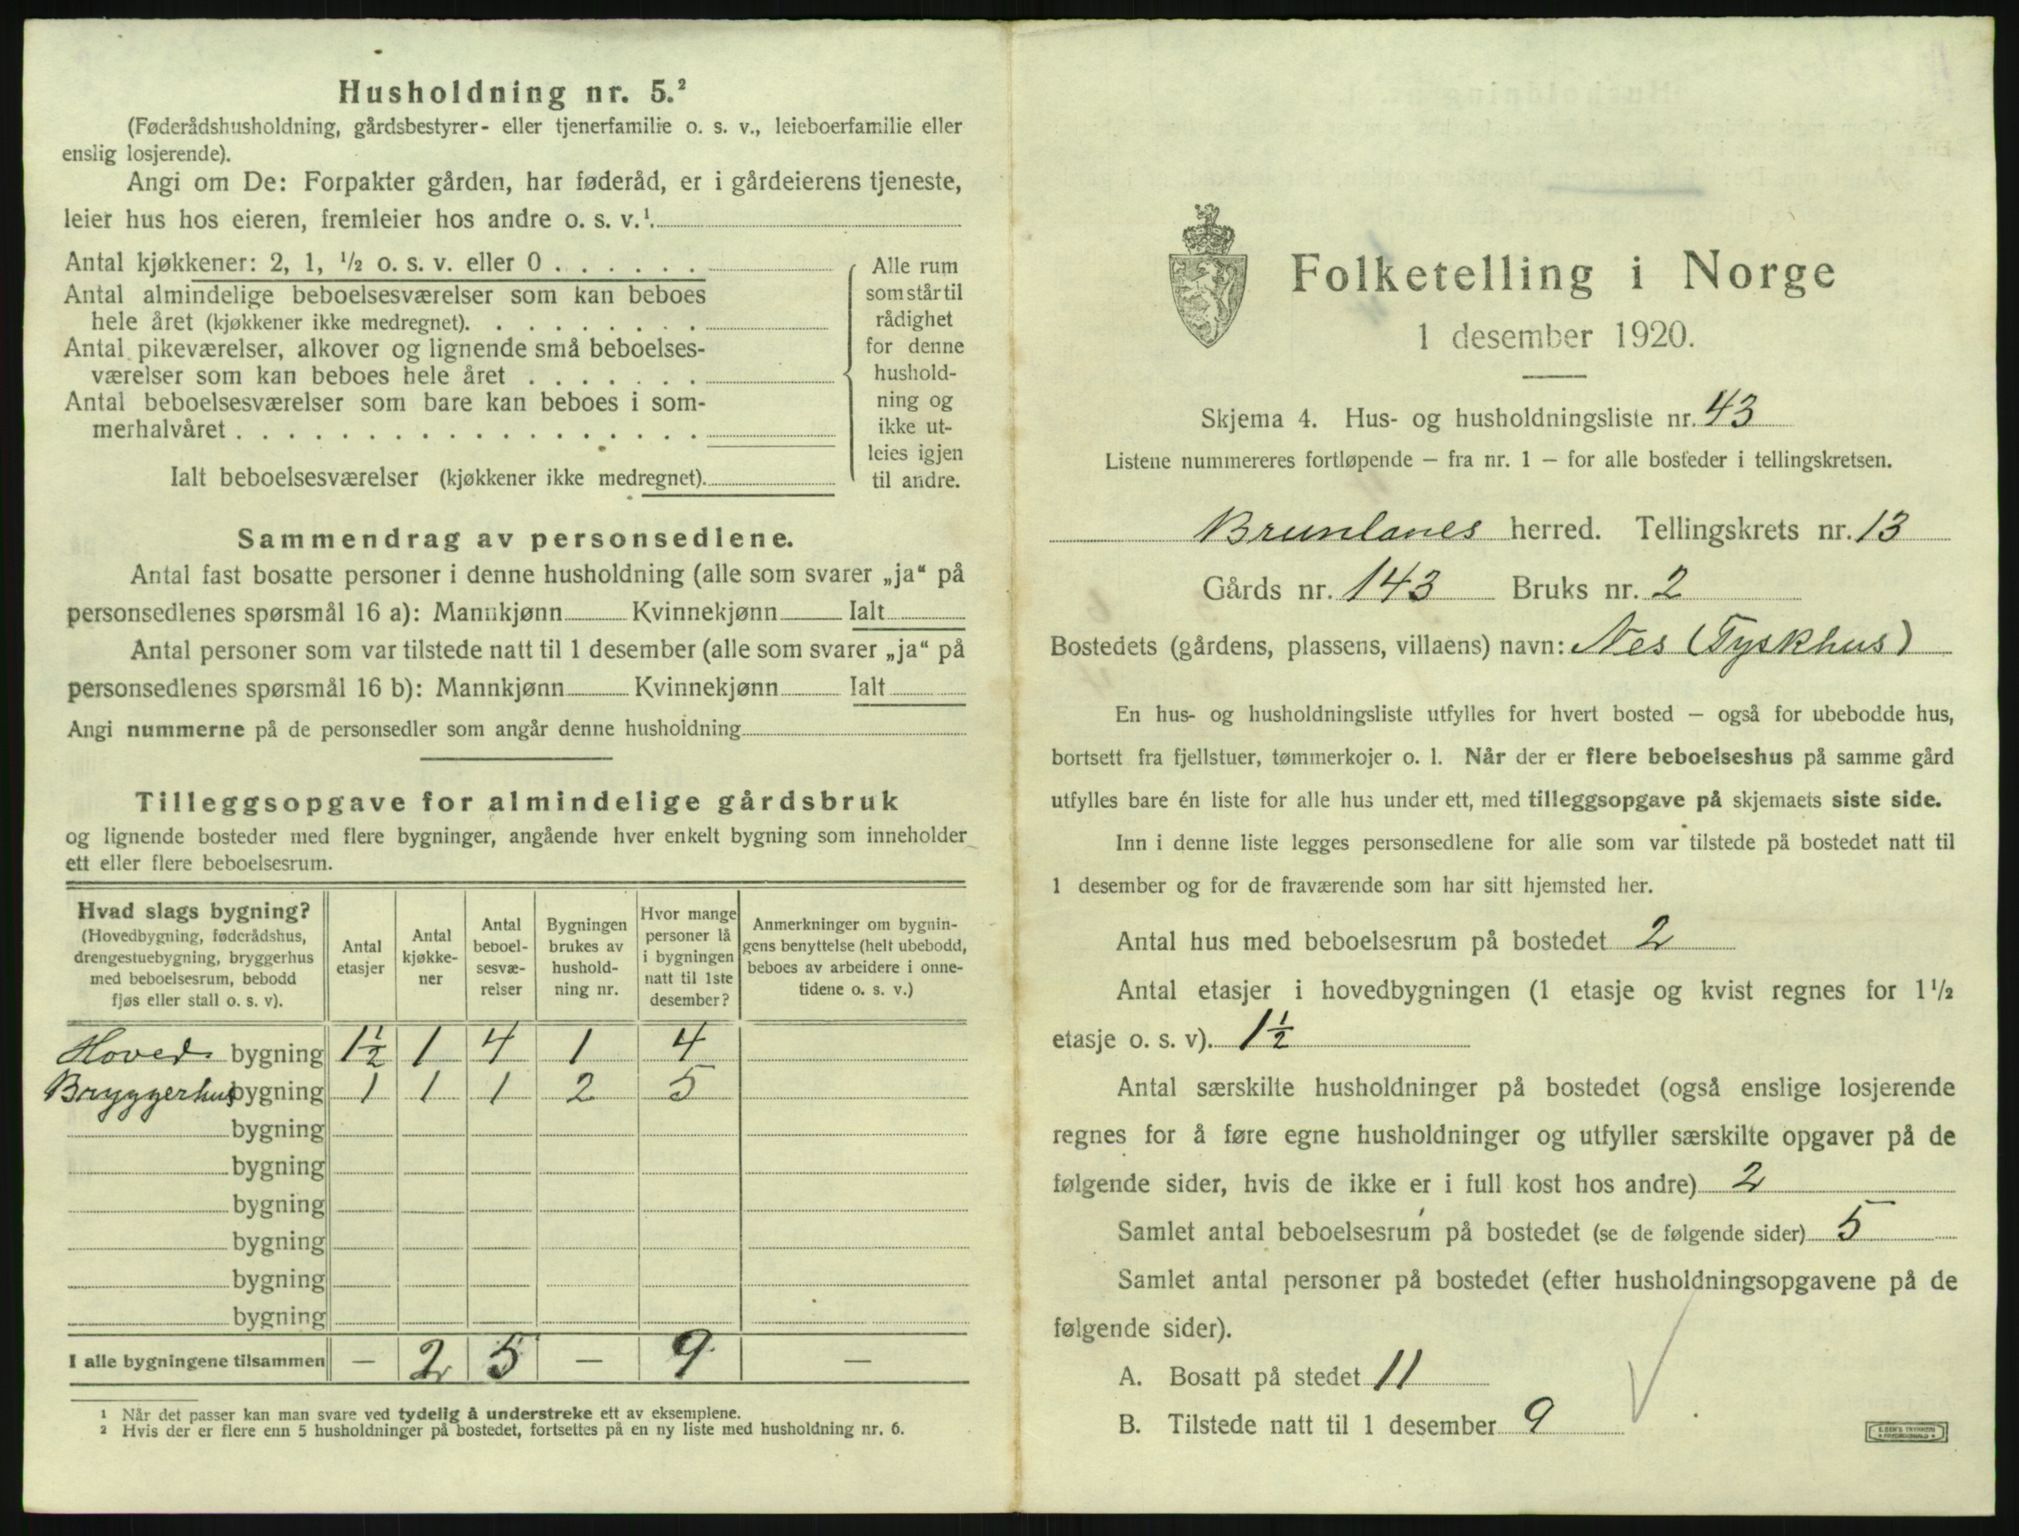 Husholdning nr. 5.²
(Føderådshusholdning, gårdsbestyrer- eller tjenerfamilie o. s. v., leieboerfamilie eller
enslig losjerende).
Angi om De: Forpakter gården, har føderåd, er i gårdeierens tjeneste,
leier hus hos eieren, fremleier hos andre o. s. v.¹.
Antal kjøkkener: 2, 1, ½ o. s. v. eller 0 . . . . . .
Antal almindelige beboelsesværelser som kan beboes
hele året (kjøkkener ikke medregnet). . . . . . . . .
Antal pikeværelser, alkover og lignende små beboelses-
værelser som kan beboes hele året . . . . . . .
Antal beboelsesværelser som bare kan beboes i som-
merhalvåret . . . . . . . . . . . . . . . . . .
Ialt beboelsesværelser (kjøkkener ikke medregnet).
Alle rum
som står til
rådighet
for denne
hushold-
ning og
ikke ut-
leies igjen
til andre.
Sammendrag av personsedlene.
Antal fast bosatte personer i denne husholdning (alle som svarer „ja“ på
personsedlenes spørsmål 16 a): Mannkjønn Kvinnekjønn Ialt
Antal personer som var tilstede natt til 1 desember (alle som svarer „ja“ på
personsedlenes spørsmål 16 b): Mannkjønn Kvinnekjønn Ialt
Angi nummerne på de personsedler som angår denne husholdning
Tilleggsopgave for almindelige gårdsbruk
og lignende bosteder med flere bygninger, angående hver enkelt bygning som inneholder
ett eller flere beboelsesrum.
Hvad slags bygning?
(Hovedbygning, føderådshus,
drengestuebygning, bryggerhus
med beboelsesrum, bebodd
fjøs eller stall o. s. v).
Antal
etasjer
Antal
kjøkke-
ner
Antal
beboel-
sesvæ-
relser
Bygningen
brukes av
hushold-
ning nr.
Hvor mange
personer lå
i bygningen
natt til 1ste
desember?
Anmerkninger om bygnin-
gens benyttelse (helt ubebodd,
beboes av arbeidere i onne-
tidene o. s. v.)
Hoved bygning 1½ 1 4 1 4
Bryggerhus bygning 1 1 1 2 5
bygning
bygning
bygning
bygning
bygning
bygning
I alle bygningene tilsammen — 2 5 — 9 —
¹ Når det passer kan man svare ved tydelig å understreke ett av eksemplene.
² Hvis der er flere enn 5 husholdninger på bostedet, fortsettes på en ny liste med husholdning nr. 6.
Folketelling i Norge
1 desember 1920.
Skjema 4. Hus- og husholdningsliste nr. 43
Listene nummereres fortløpende — fra nr. 1 — for alle bosteder i tellingskretsen.
Brunlanes herred. Tellingskrets nr. 13
Gårds nr. 143 Bruks nr. 2
Bostedets (gårdens, plassens, villaens) navn: Nes (Tyskhus)
En hus- og husholdningsliste utfylles for hvert bosted — også for ubebodde hus,
bortsett fra fjellstuer, tømmerkojer o. l. Når der er flere beboelseshus på samme gård
utfylles bare én liste for alle hus under ett, med tilleggsopgave på skjemaets siste side.
Inn i denne liste legges personsedlene for alle som var tilstede på bostedet natt til
1 desember og for de fraværende som har sitt hjemsted her.
Antal hus med beboelsesrum på bostedet 2
Antal etasjer i hovedbygningen (1 etasje og kvist regnes for 1½
etasje o. s. v). 1½
Antal særskilte husholdninger på bostedet (også enslige losjerende
regnes for å føre egne husholdninger og utfyller særskilte opgaver på de
følgende sider, hvis de ikke er i full kost hos andre) 2
Samlet antal beboelsesrum på bostedet (se de følgende sider) 5
Samlet antal personer på bostedet (efter husholdningsopgavene på de
følgende sider).
A. Bosatt på stedet 11
B. Tilstede natt til 1 desember 9